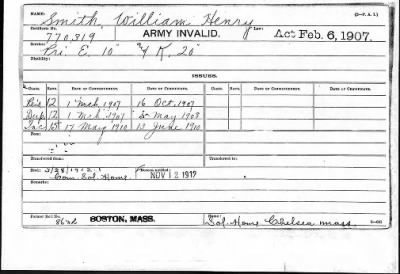 NAME: Smith, William Henry (3-P. A. 1.)
Certificate No. 770,319 ARMY INVALID. Law: Act Feb. 6, 1907.
Service: Pri E. 10" "& K. 20"
Disability:
ISSUES.
CLASS. RATE. DATE OF COMMENCEMENT. DATE OF CERTIFICATE. CLASS. RATE. DATE OF COMMENCEMENT. DATE OF CERTIFICATE.
12 1" Mch. 1907 16 Oct. 1907
12 1" Mch. 1907 5" May 1908
15 17 May 1910 13 June 1910
Transferred from:
Died: Sol. Home. NOV 12 1912
Remarks:
BOSTON, MASS. Home: Sol. Home Chelsea mass.